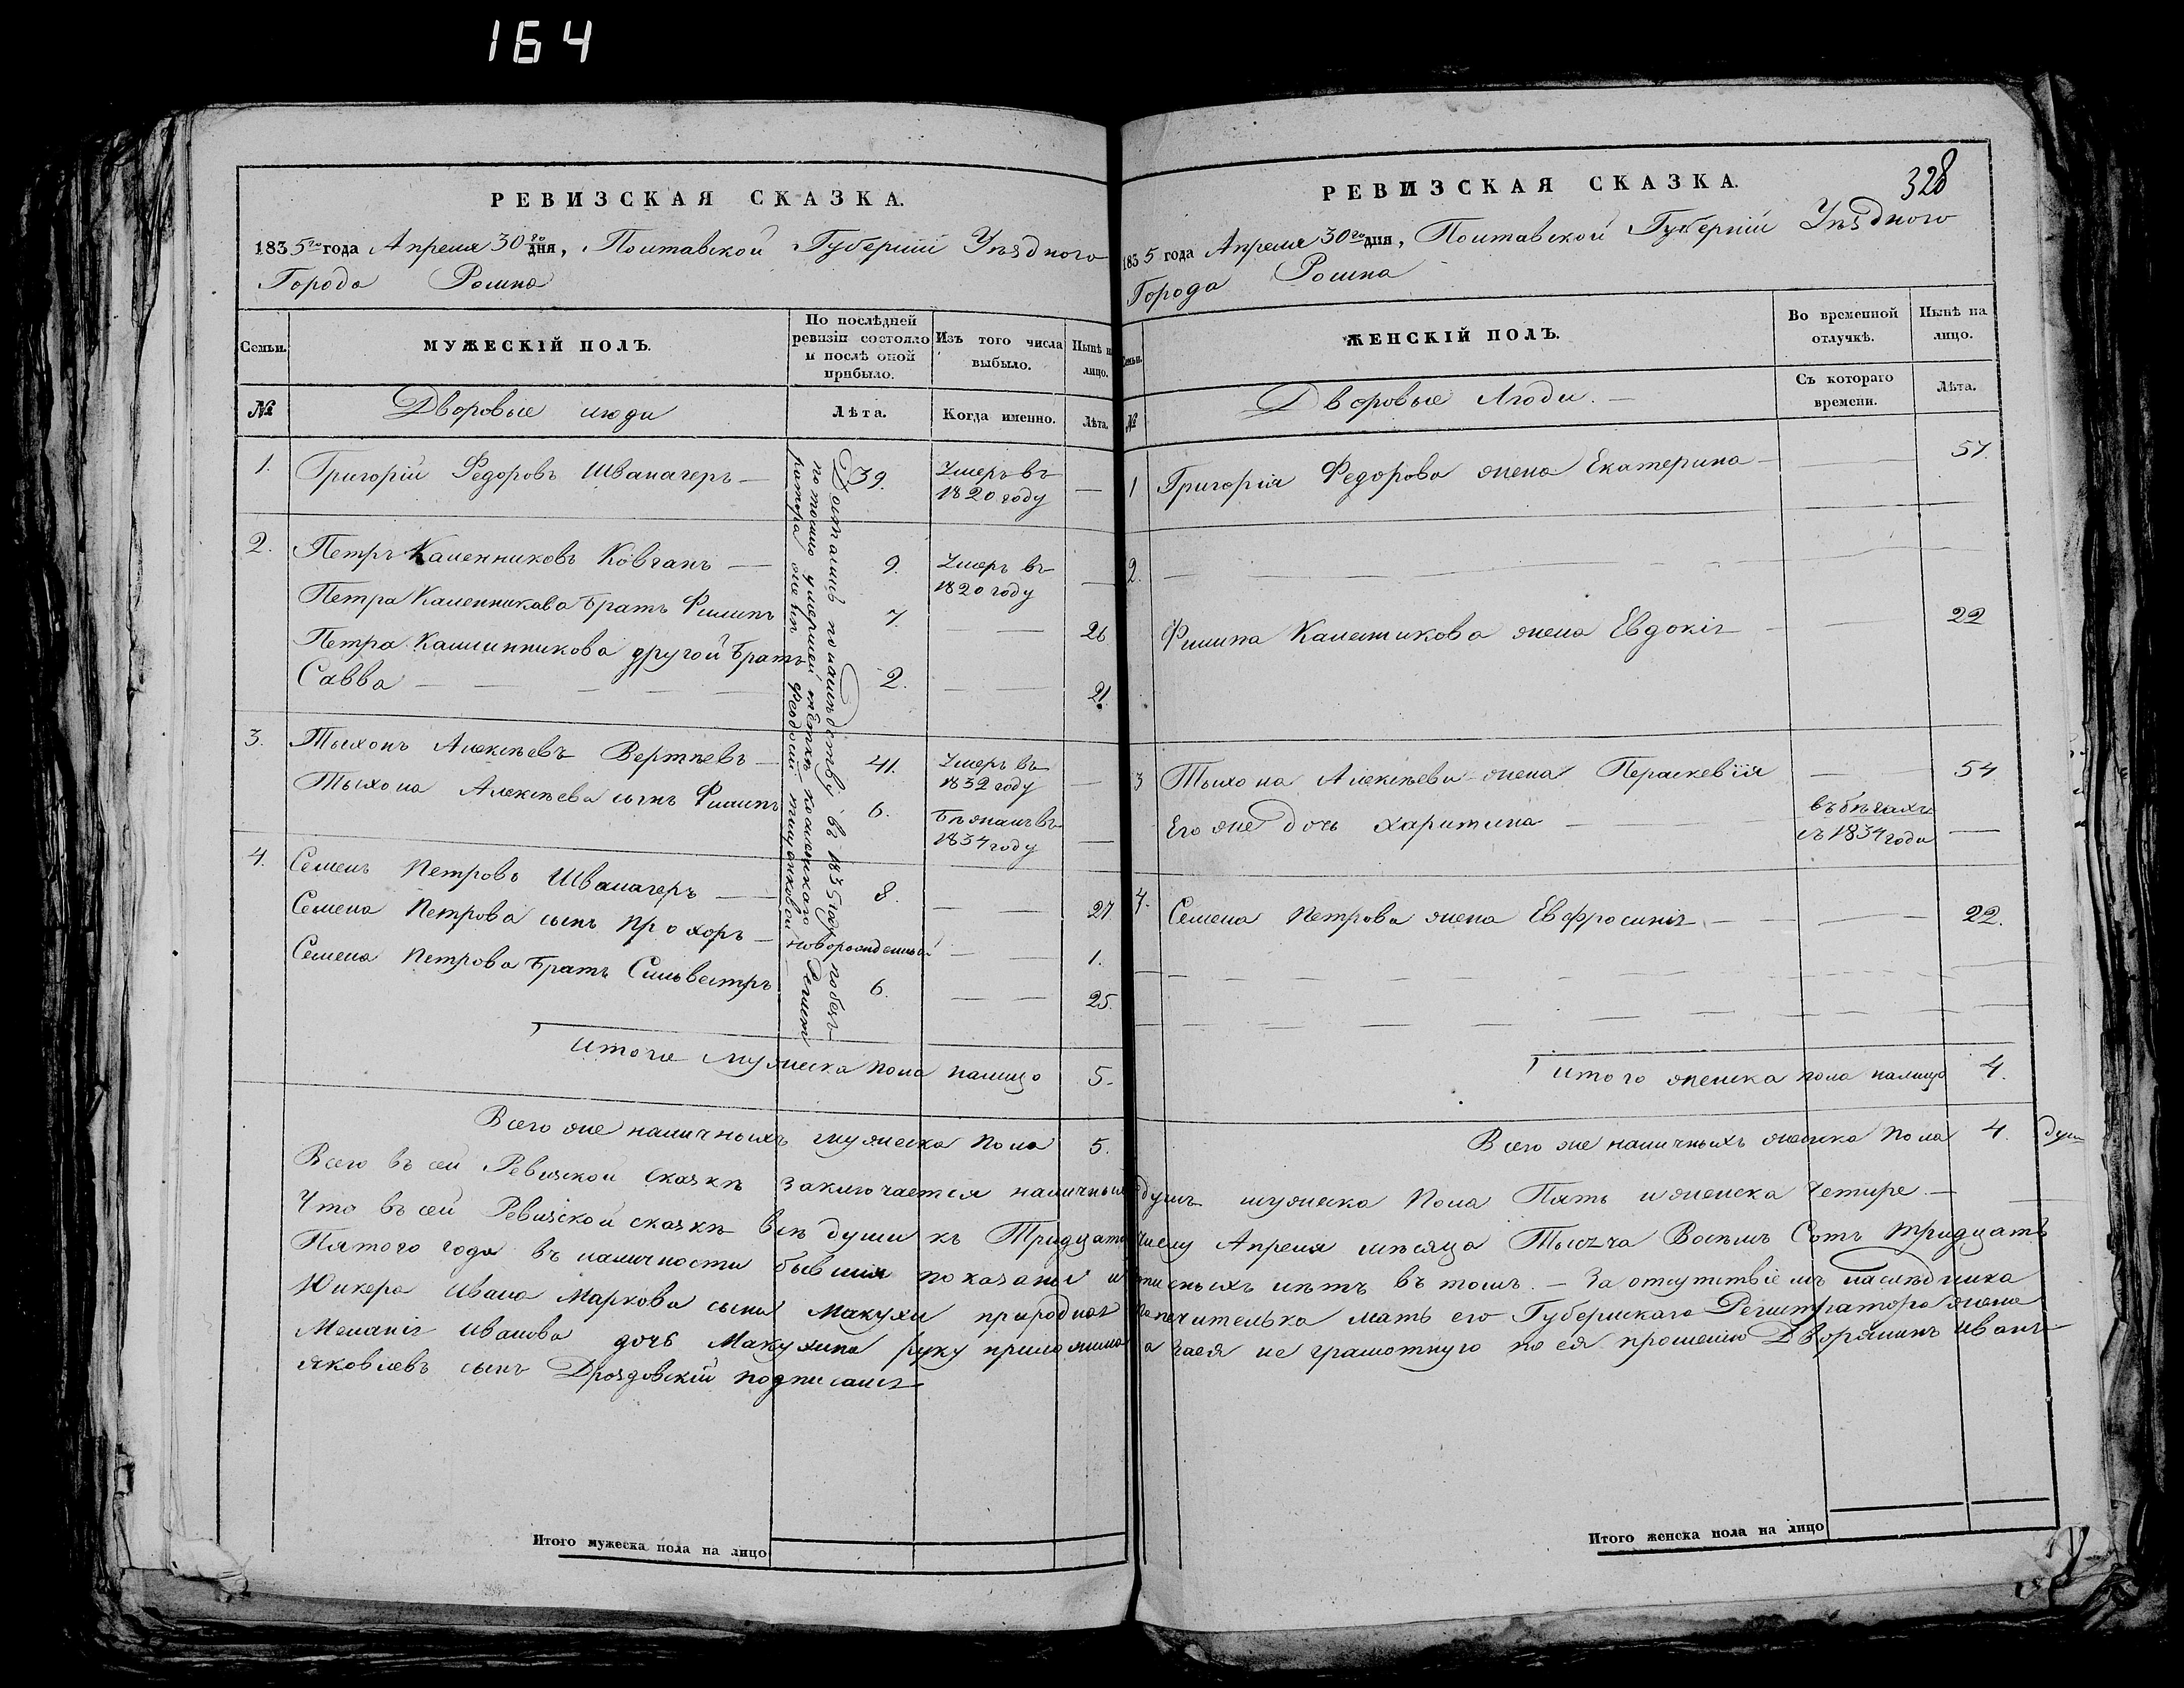 164
РЕВИЗСКАЯ СКАЗКА.
1835го года Апреля 30го дня, Полтавской Губерніи Уѣзднаго
Города Ромна
Семьи.
МУЖЕСКІЙ ПОЛЪ.
По послѣдней ревизіи состояло и послѣ оной прибыло.
Изъ того числа выбыло.
Нынѣ на лицо.
№
Дворовые люди
Лѣта.
Когда именно.
Лѣта.
1. Григорій Федоровъ Шванагеръ — 39. Умеръ въ 1820 году —
2. Петръ Каленниковъ Ковчанъ — 9. Умеръ въ 1820 году —
Петра Каленникова братъ Филипъ 7. — — 26
Петра Калинникова другой братъ
Савва — — — — — 2. — — 21.
3. Тыхонъ Алексѣевъ Вертѣевъ — 41. Умеръ въ 1832 году —
Тыхона Алексѣева сынъ Филипъ 6. Бѣжалъ въ 1834 году —
4. Семенъ Петровъ Шванагеръ — 8. — — 27
Семена Петрова сынъ Прохоръ — новорожденный — — 1.
Семена Петрова братъ Сильвестръ 6. — — 25.
Достались по наслѣдству въ 1835 году по
по умершей тёткѣ Регист
ратора женѣ Феодосіи
Итого мужеска пола налицо 5.
Всего же наличныхъ мужеска пола 5.
РЕВИЗСКАЯ СКАЗКА.
328
1835 года Апреля 30го дня, Полтавской Губерніи Уѣзднаго
Города Ромна
Семьи.
ЖЕНСКІЙ ПОЛЪ.
Во временной отлучкѣ.
Нынѣ на лицо.
№
Дворовые Люди. —
Съ котораго времени.
Лѣта.
1 Григорія Федорова жена Екатерина — — 57.
2. — — — —
Филипа Каленикова жена Евдокія — — 22
3 Тыхона Алексѣева жена Параскевіія — 54
Его же дочь Харитина — въ бѣгахъ съ 1834 года —
4. Семена Петрова жена Евфросинія — — 22.
Итого женска пола налицо 4.
Всего же наличныхъ женска пола 4. душ
Всего въ сей Ревизской сказкѣ заключается наличныхъ душъ мужеска пола Пять и женска Четире. —
Что въ сей Ревизской сказкѣ всѣ души къ Тридцатому числу Апреля мѣсяца Тысяча Восѣмь Сотъ тридцать
Пятого года въ наличности бывшия показаны и описныхъ нѣтъ въ томъ. — За отсутствіемъ наслѣдника
Юнкера Ивана Маркова сына Макухи природная попечителька мать его Губернскаго Регистратора жена
Меланія Иванова дочь Макухина руку приложила а за ея не грамотную по ея прошенію Дворянинъ Иванъ
Яковлевъ сынъ Дроздовскій подписался
Итого мужеска пола на лицо
Итого женска пола на лицо